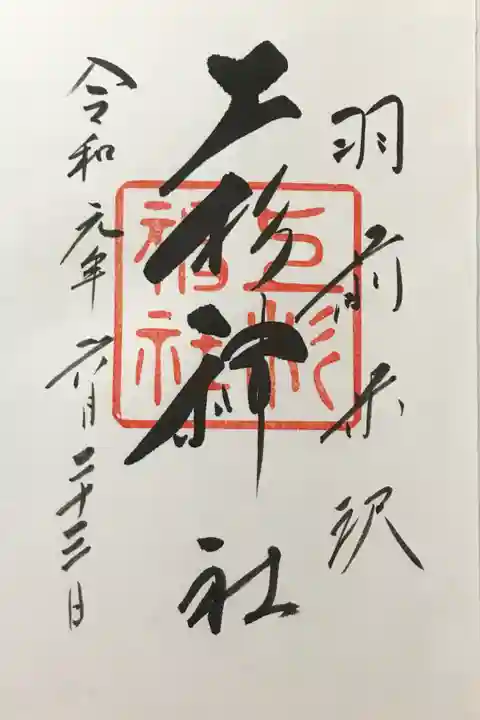 羽前米沢
上杉神社
令和元年六月二十三日